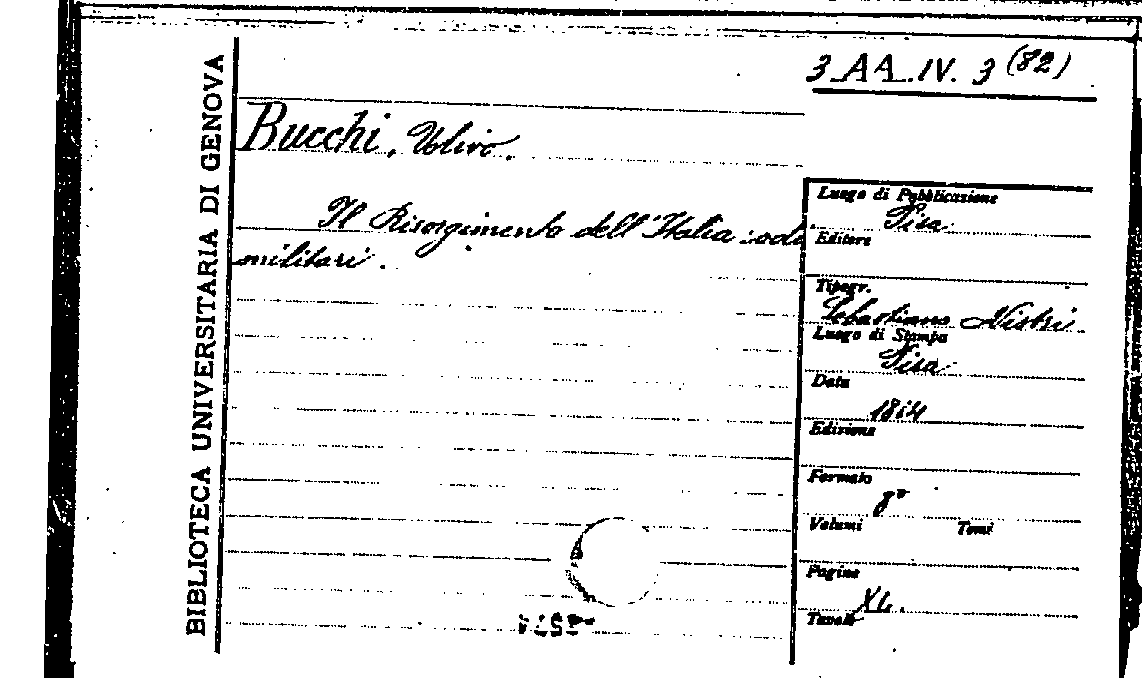 BIBLIOTECA UNIVERSITARIA DI GENOVA
3 AA IV. 3 (82)
Bucchi, Ulivo.
Il Risorgimento dell'Italia: odi
militari.
Luogo di Pubblicazione
Pisa
Editore
Tipogr.
Sebastiano Nistri
Luogo di Stampa
Pisa
Data
Edizione
Formato
8°
Volumi Tomi
Pagine
XL.
Tavole